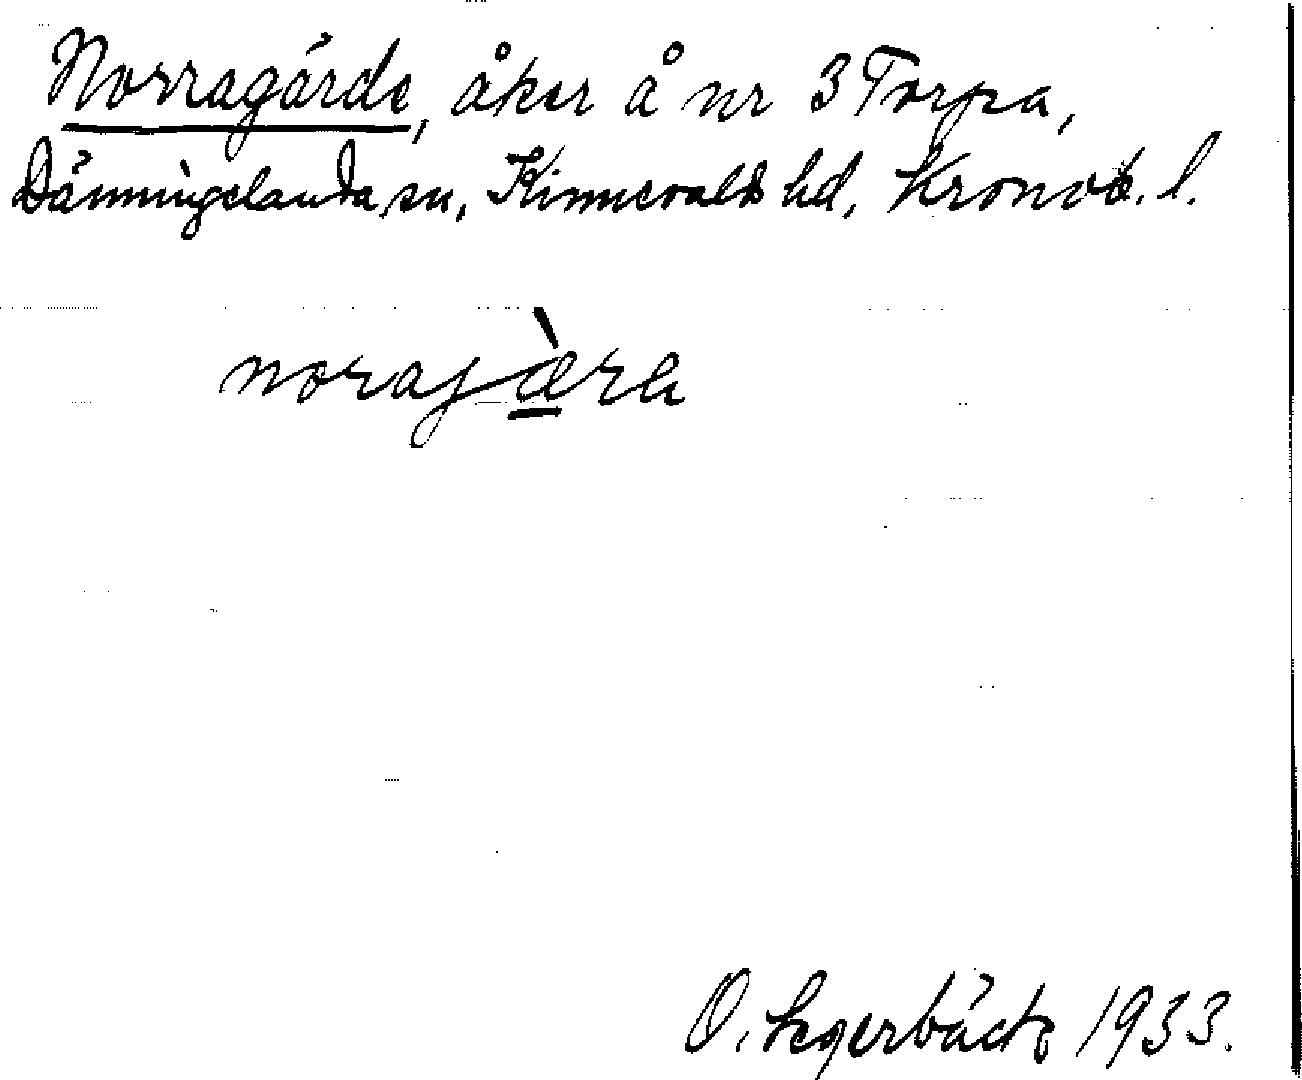 Norragärde, åker å nr 3 Torpa,
Dänningelanda sn, Kinnevalds hd, Kronob. l.
norajæ̀ra
O. Segerbäck 1933.